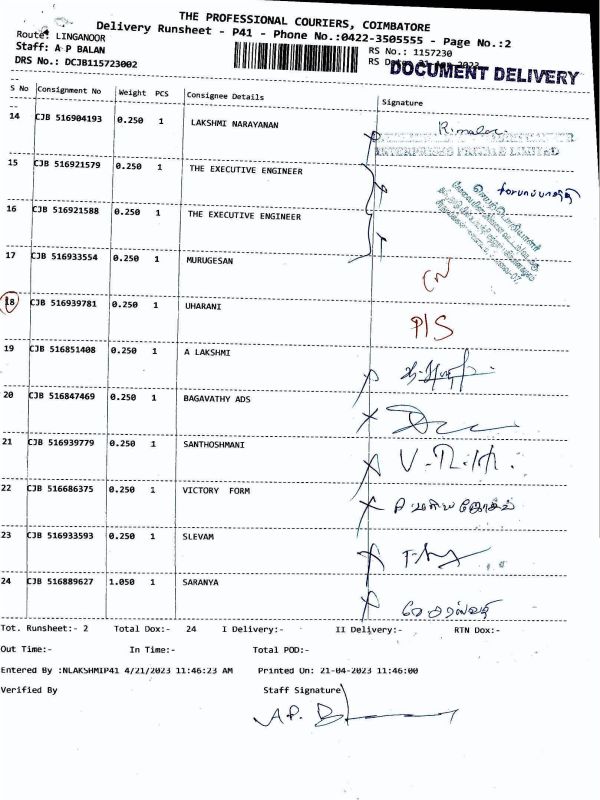 THE PROFESSIONAL COURIERS, COIMBATORE
Delivery Runsheet - P41 - Phone No.:0422-3505555 - Page No.:2
Route: LINGANOOR
Staff: A P BALAN
DRS No.: DCJB115723002
RS No.: 1157230
RS Date:
DOCUMENT DELIVERY
S No Consignment No Weight PCS Consignee Details Signature
14 CJB 516904193 0.250 1 LAKSHMI NARAYANAN
ENTERPRISES PRIVATE LIMITED
15 CJB 516921579 0.250 1 THE EXECUTIVE ENGINEER
16 CJB 516921588 0.250 1 THE EXECUTIVE ENGINEER
17 CJB 516933554 0.250 1 MURUGESAN
18 CJB 516939781 0.250 1 UHARANI P/S
19 CJB 516851408 0.250 1 A LAKSHMI
20 CJB 516847469 0.250 1 BAGAVATHY ADS
21 CJB 516939779 0.250 1 SANTHOSHMANI
22 CJB 516686375 0.250 1 VICTORY FORM
23 CJB 516933593 0.250 1 SLEVAM
24 CJB 516889627 1.050 1 SARANYA
Tot. Runsheet:- 2 Total Dox:- 24 I Delivery:- II Delivery:- RTN Dox:-
Out Time:- In Time:- Total POD:-
Entered By :NLAKSHMIP41 4/21/2023 11:46:23 AM Printed On: 21-04-2023 11:46:00
Verified By Staff Signature
A.P.